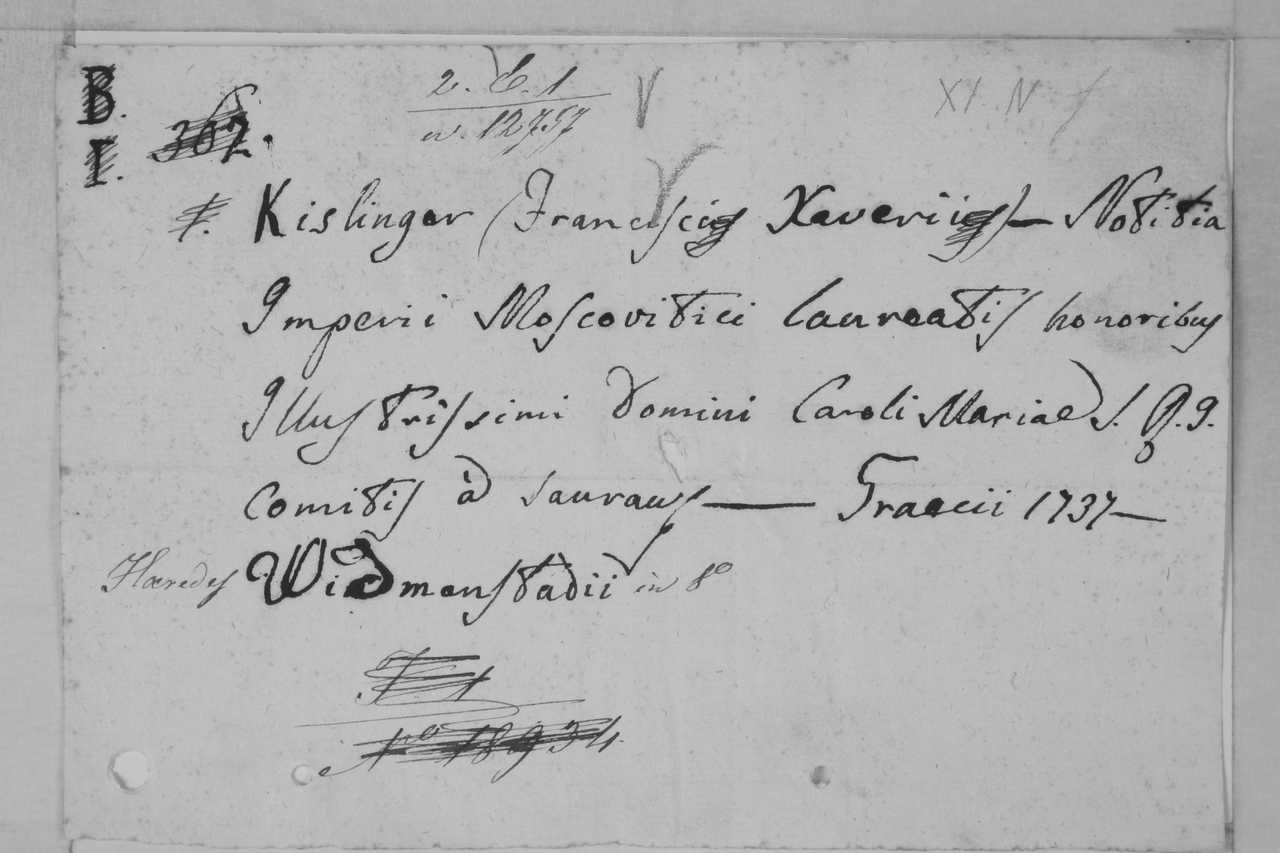 B.
I.
367.
2. E. 1
n. 12757
XI. N f
F. Kislinger (Francisci Xaverii) — Notitia
Imperii Moscovitici laureatis honoribus
Illustrissimi Domini Caroli Mariae S. R. I.
Comitis à Sauraus — Graecii 1737 —
Hæredes Widmenstadii in 8º
F 1
Nº 18934.